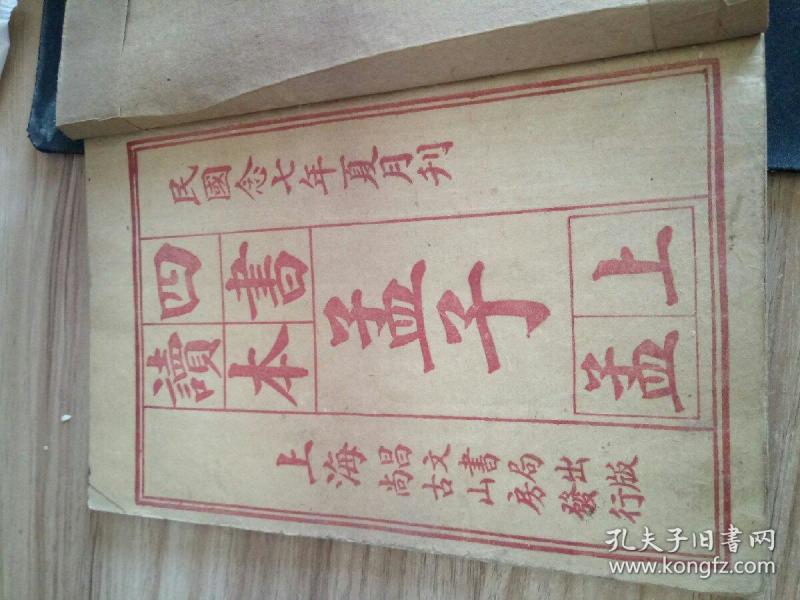 民國念七年夏月刊
四書
讀本
孟子
上孟
上海
昌文書局出版
尚古山房發行
孔夫子旧书网
www.kongfz.com